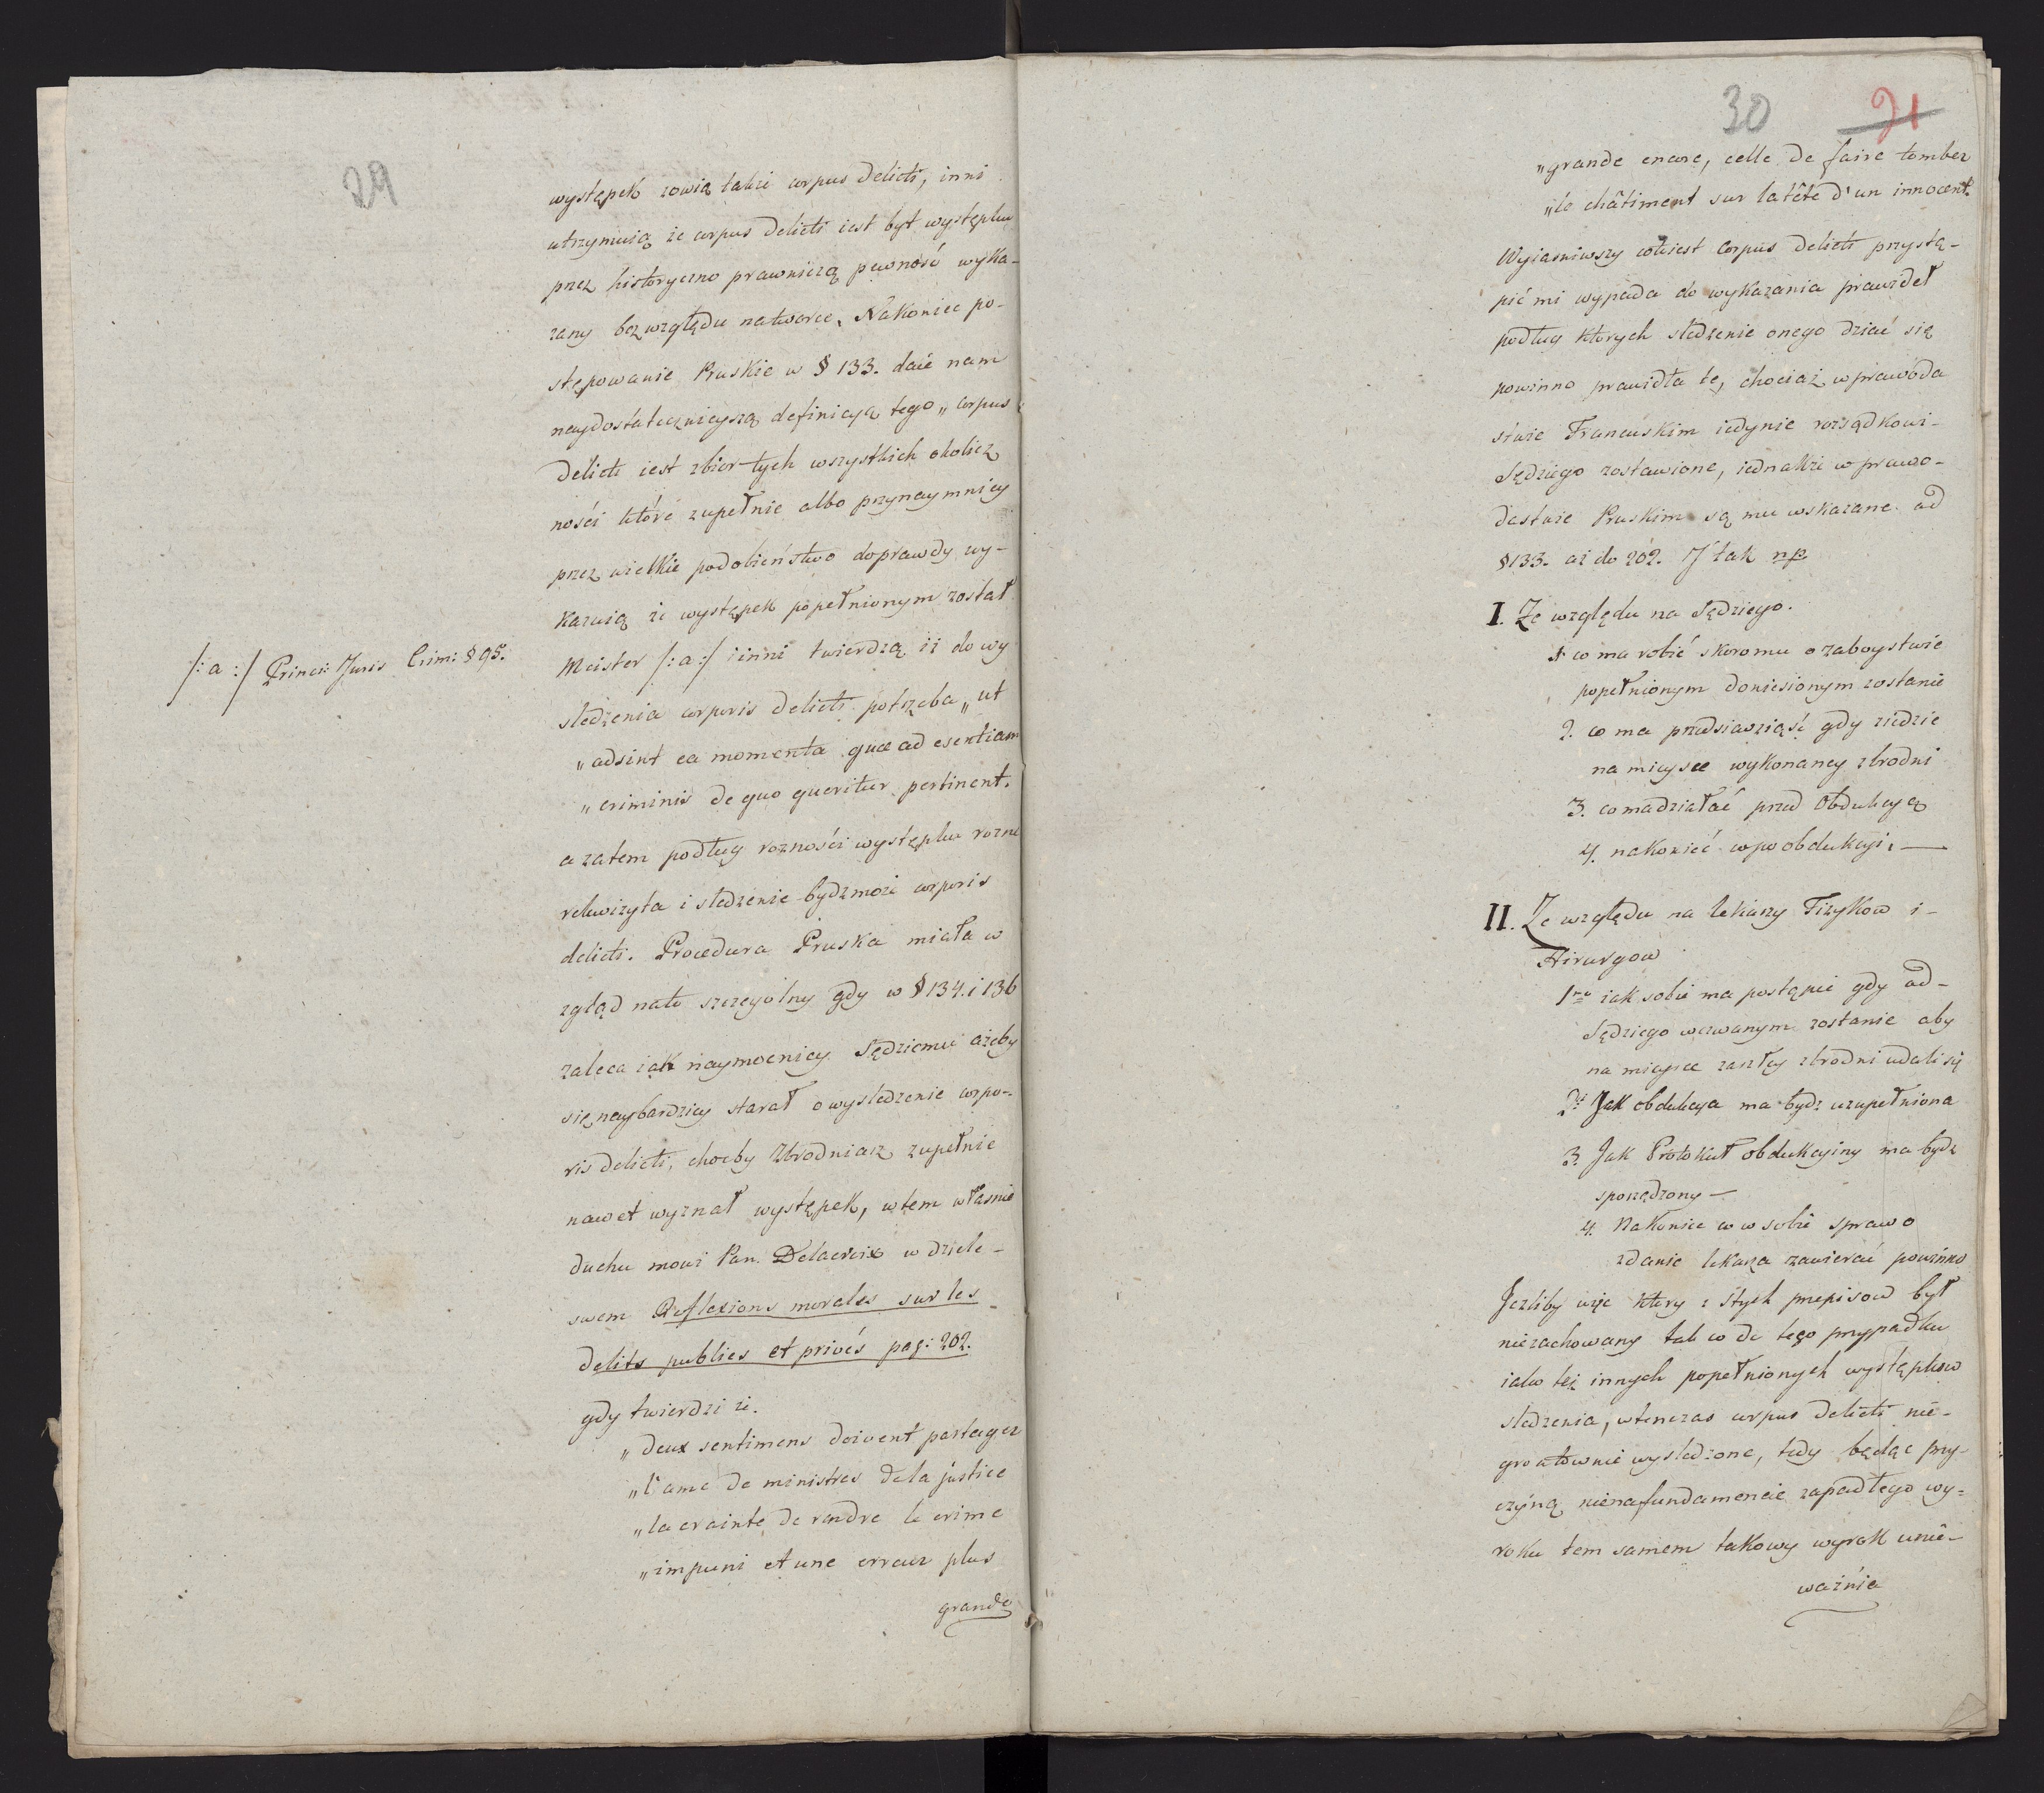 29
występek zowią także corpus delicti, inni
utrzymuią że corpus delicti iest byt występku
przez historyczno prawniczą pewność wyka-
zany bez względu na tworcę. Nakoniec po-
stępowanie Pruskie w § 133. daie nam
naydostatecznieyszą definicyą tego „corpus
delicti iest zbior tych wszystkich okolicz
ności które zupełnie albo przynaymniey
przez wielkie podobieństwo doprawdy wy-
kazuią że występek popełnionym został
/: a :/ Princi: Juris Crim: § 95.
Meister /: a :/ i inni twierdzą iż do wy
sledzenia corporis delicti potrzeba „ut
„adsint ea momenta quae ad esentiam
„criminis de quo queritur pertinent.
a zatem podług rozności występku rozne
rekwizyta i sledzenie bydz może corporis
delicti. Procedura Pruska miała w
zgląd na to szczegolny gdy w § 134. i 136
zaleca iak naymocniey Sędziemu ażeby
się naybardziey starał o wysledzenie corpo-
ris delicti, choćby Zbrodniarz zupełnie
nawet wyznał występek, w tem własnie
duchu mowi Pan Delacroix w dziele-
swem Reflexions morales sur les
delits publics et privés pag: 202.
gdy twierdzi że.
„deux sentimens doivent partager
„l'ame de ministres de la justice
„la crainte de rendre le crime
„impuni et une erreur plus
grande
30 21
„grande encore, celle de faire tomber
„le châtiment sur la tête d'un innocent.
Wyiasniwszy co to iest Corpus delicti przystą-
pić mi wypada do wykazania prawideł
podług których sledzenie onego dziać się
powinno prawidła te, chociaż w prawoda
stwie Francuskim iedynie rozsądkowi-
Sędziego zostawione, iednakże w prawo-
dastwie Pruskim są mu wskazane od
§ 133. aż do 202. I tak np
I. Ze względu na Sędziego.
1 co ma robić skoro mu o zaboystwie
popełnionym doniesionym zostanie
2. co ma przedsiawziąść gdy ziedzie
na mieysce wykonaney zbrodni
3. co ma działać przed Obdukcyą
4. nakoniec co po obdukcyi. —
II. Ze względu na lekarzy Fizykow i-
Hirurgow
1mo iak sobie ma postąpić gdy od-
Sędziego wezwanym zostanie aby
na mieysce zaszłey zbrodni udali się
2. Jak obdukcya ma bydz uzupełniona
3. Jak Protokuł obdukcyiny ma bydz
sporządzony —
4. Nakoniec co w sobie sprawo
zdanie lekarza zawierać powinno
Jezliby więc ktory z tych przepisow był
niezachowany tak co do tego przypadku
iako też innych popełnionych występkow
sledzenia, wtenczas corpus delicti nie-
gruntownie wysledzone, tedy będąc przy-
czyną nienafundamencie zapadłego wy-
roku tem samem takowy wyrok unie-
ważnia